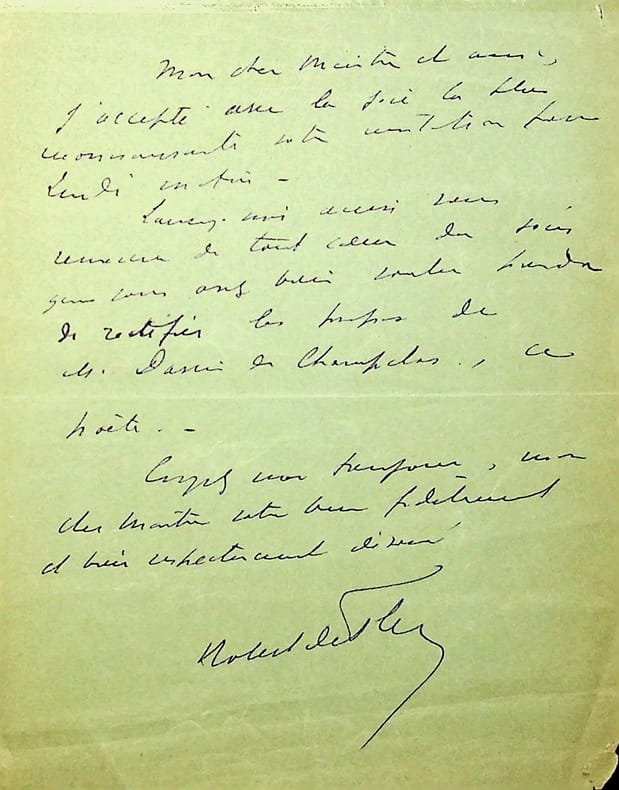 Mon cher Maître et ami,
j'accepte avec la joie la plus
reconnaissante votre invitation pour
Lundi matin —
Laissez-moi aussi vous
remercier de tout cœur du soin
que vous avez bien voulu prendre
de rectifier les propos de
M. Danin de Champclos, ce
poète. —
Croyez moi toujours, mon
cher Maître votre bien fidèlement
et bien respectueusement dévoué
Robert de Flers